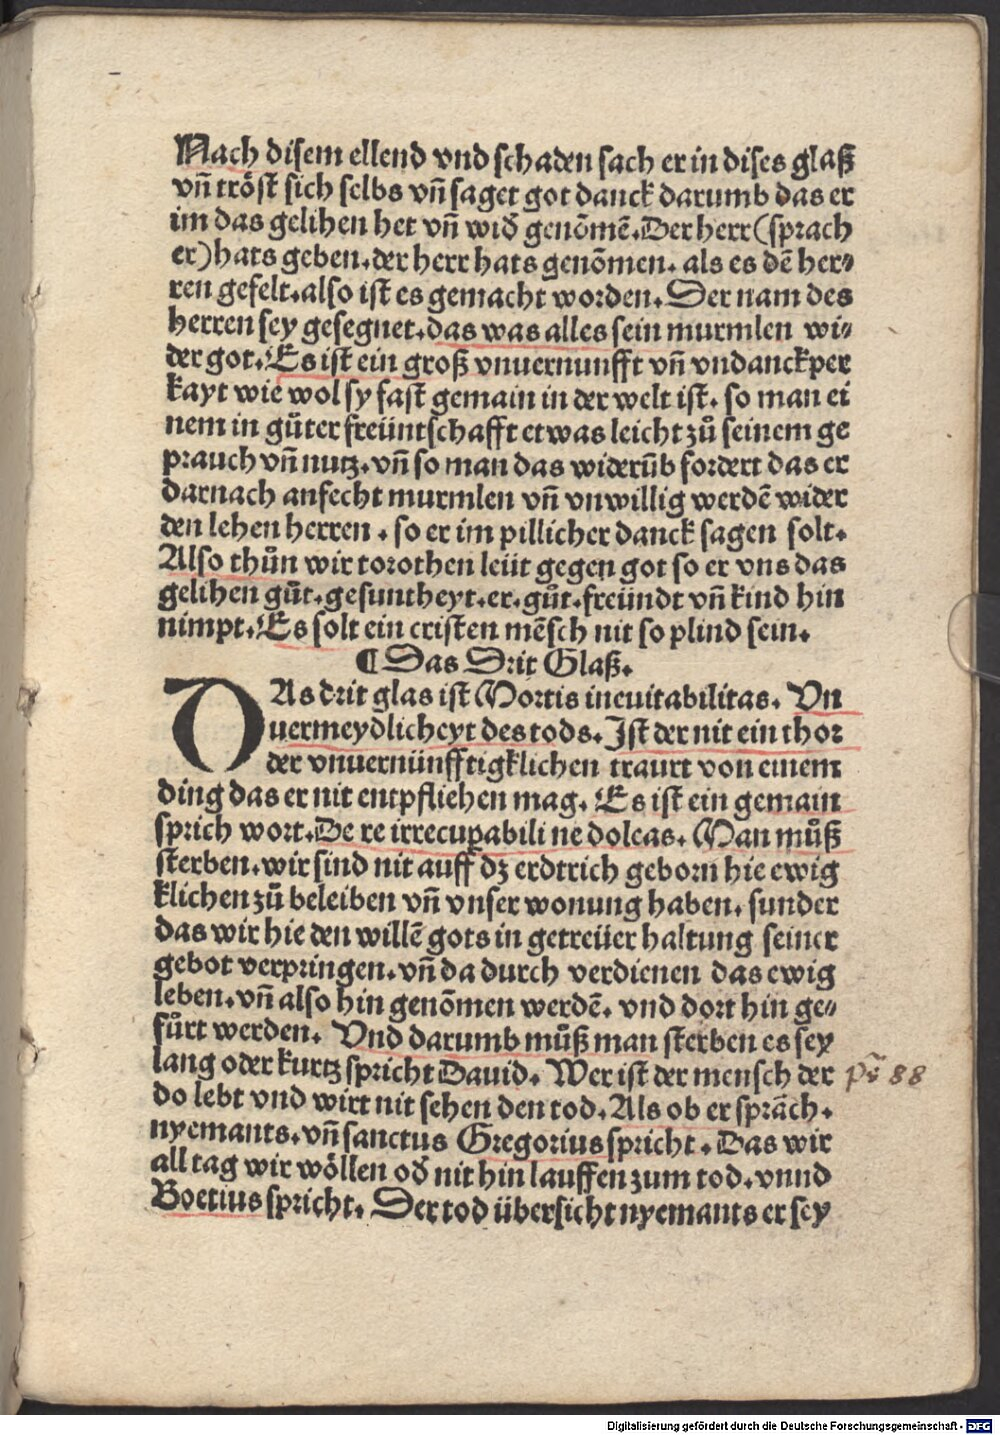 Nach disem ellend vnd schaden sach er in dises glaß
vñ tröst sich selbs vñ saget got danck darumb das er
im das gelihen het vñ wiď genõmē. Der herr (sprach
er) hats geben. der herr hats genõmen. als es dē her⸗
ren gefelt. also ist es gemacht worden. Der nam des
herren sey gesegnet. das was alles sein murmlen wi⸗
der got. Es ist ein groß vnuernunfft vñ vndanckper
kayt wie wol sy fast gemain in der welt ist. so man ei
nem in gůter freüntschafft etwas leicht zů seinem ge
prauch vñ nutz. vñ so man das widerūb fordert das er
darnach anfecht murmlen vñ vnwillig werdē wider
den lehen herren . so er im pillicher danck sagen solt.
Also thůn wir torothen leüt gegen got so er vns das
gelihen gůt. gesuntheyt. er. gůt. freündt vñ kind hin
nimpt. Es solt ein cristen mēsch nit so plind sein.
¶ Das Drit Glaß.
DAs drit glas ist Mortis ineuitabilitas. Vn
uermeydlicheyt des tods. Ist der nit ein thor
der vnuernünfftigklichen traurt von einem
ding das er nit entpfliehen mag. Es ist ein gemain
sprich wort. De re irrecuꝑabili ne doleas. Man můß
sterben. wir sind nit auff dz erdtrich geborn hie ewig
klichen zů beleiben vñ vnser wonung haben. sunder
das wir hie den willē gots in getreüer haltung seiner
gebot verpringen. vñ da durch verdienen das ewig
leben. vñ also hin genõmen werdē. vnd dort hin ge⸗
fůrt werden. Vnd darumb můß man sterben es sey
lang oder kurtz spricht Dauid. Wer ist der mensch der
ps 88
do lebt vnd wirt nit sehen den tod. Als ob er sprãch.
nyemants. vñ sanctus Gregorius spricht. Das wir
all tag wir wöllen oď nit hin lauffen zum tod. vnnd
Boetius spricht. Der tod übersicht nyemants er sey
Digitalisierung gefördert durch die Deutsche Forschungsgemeinschaft - DFG